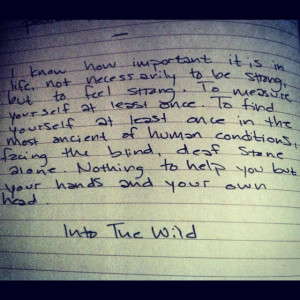 I know how important it is in
life, not necessarily to be strong,
but to feel strong. To measure
yourself at least once. To find
yourself at least once in the
most ancient of human conditions,
facing the blind, deaf stone
alone. Nothing to help you but
your hands and your own
head.
Into The Wild